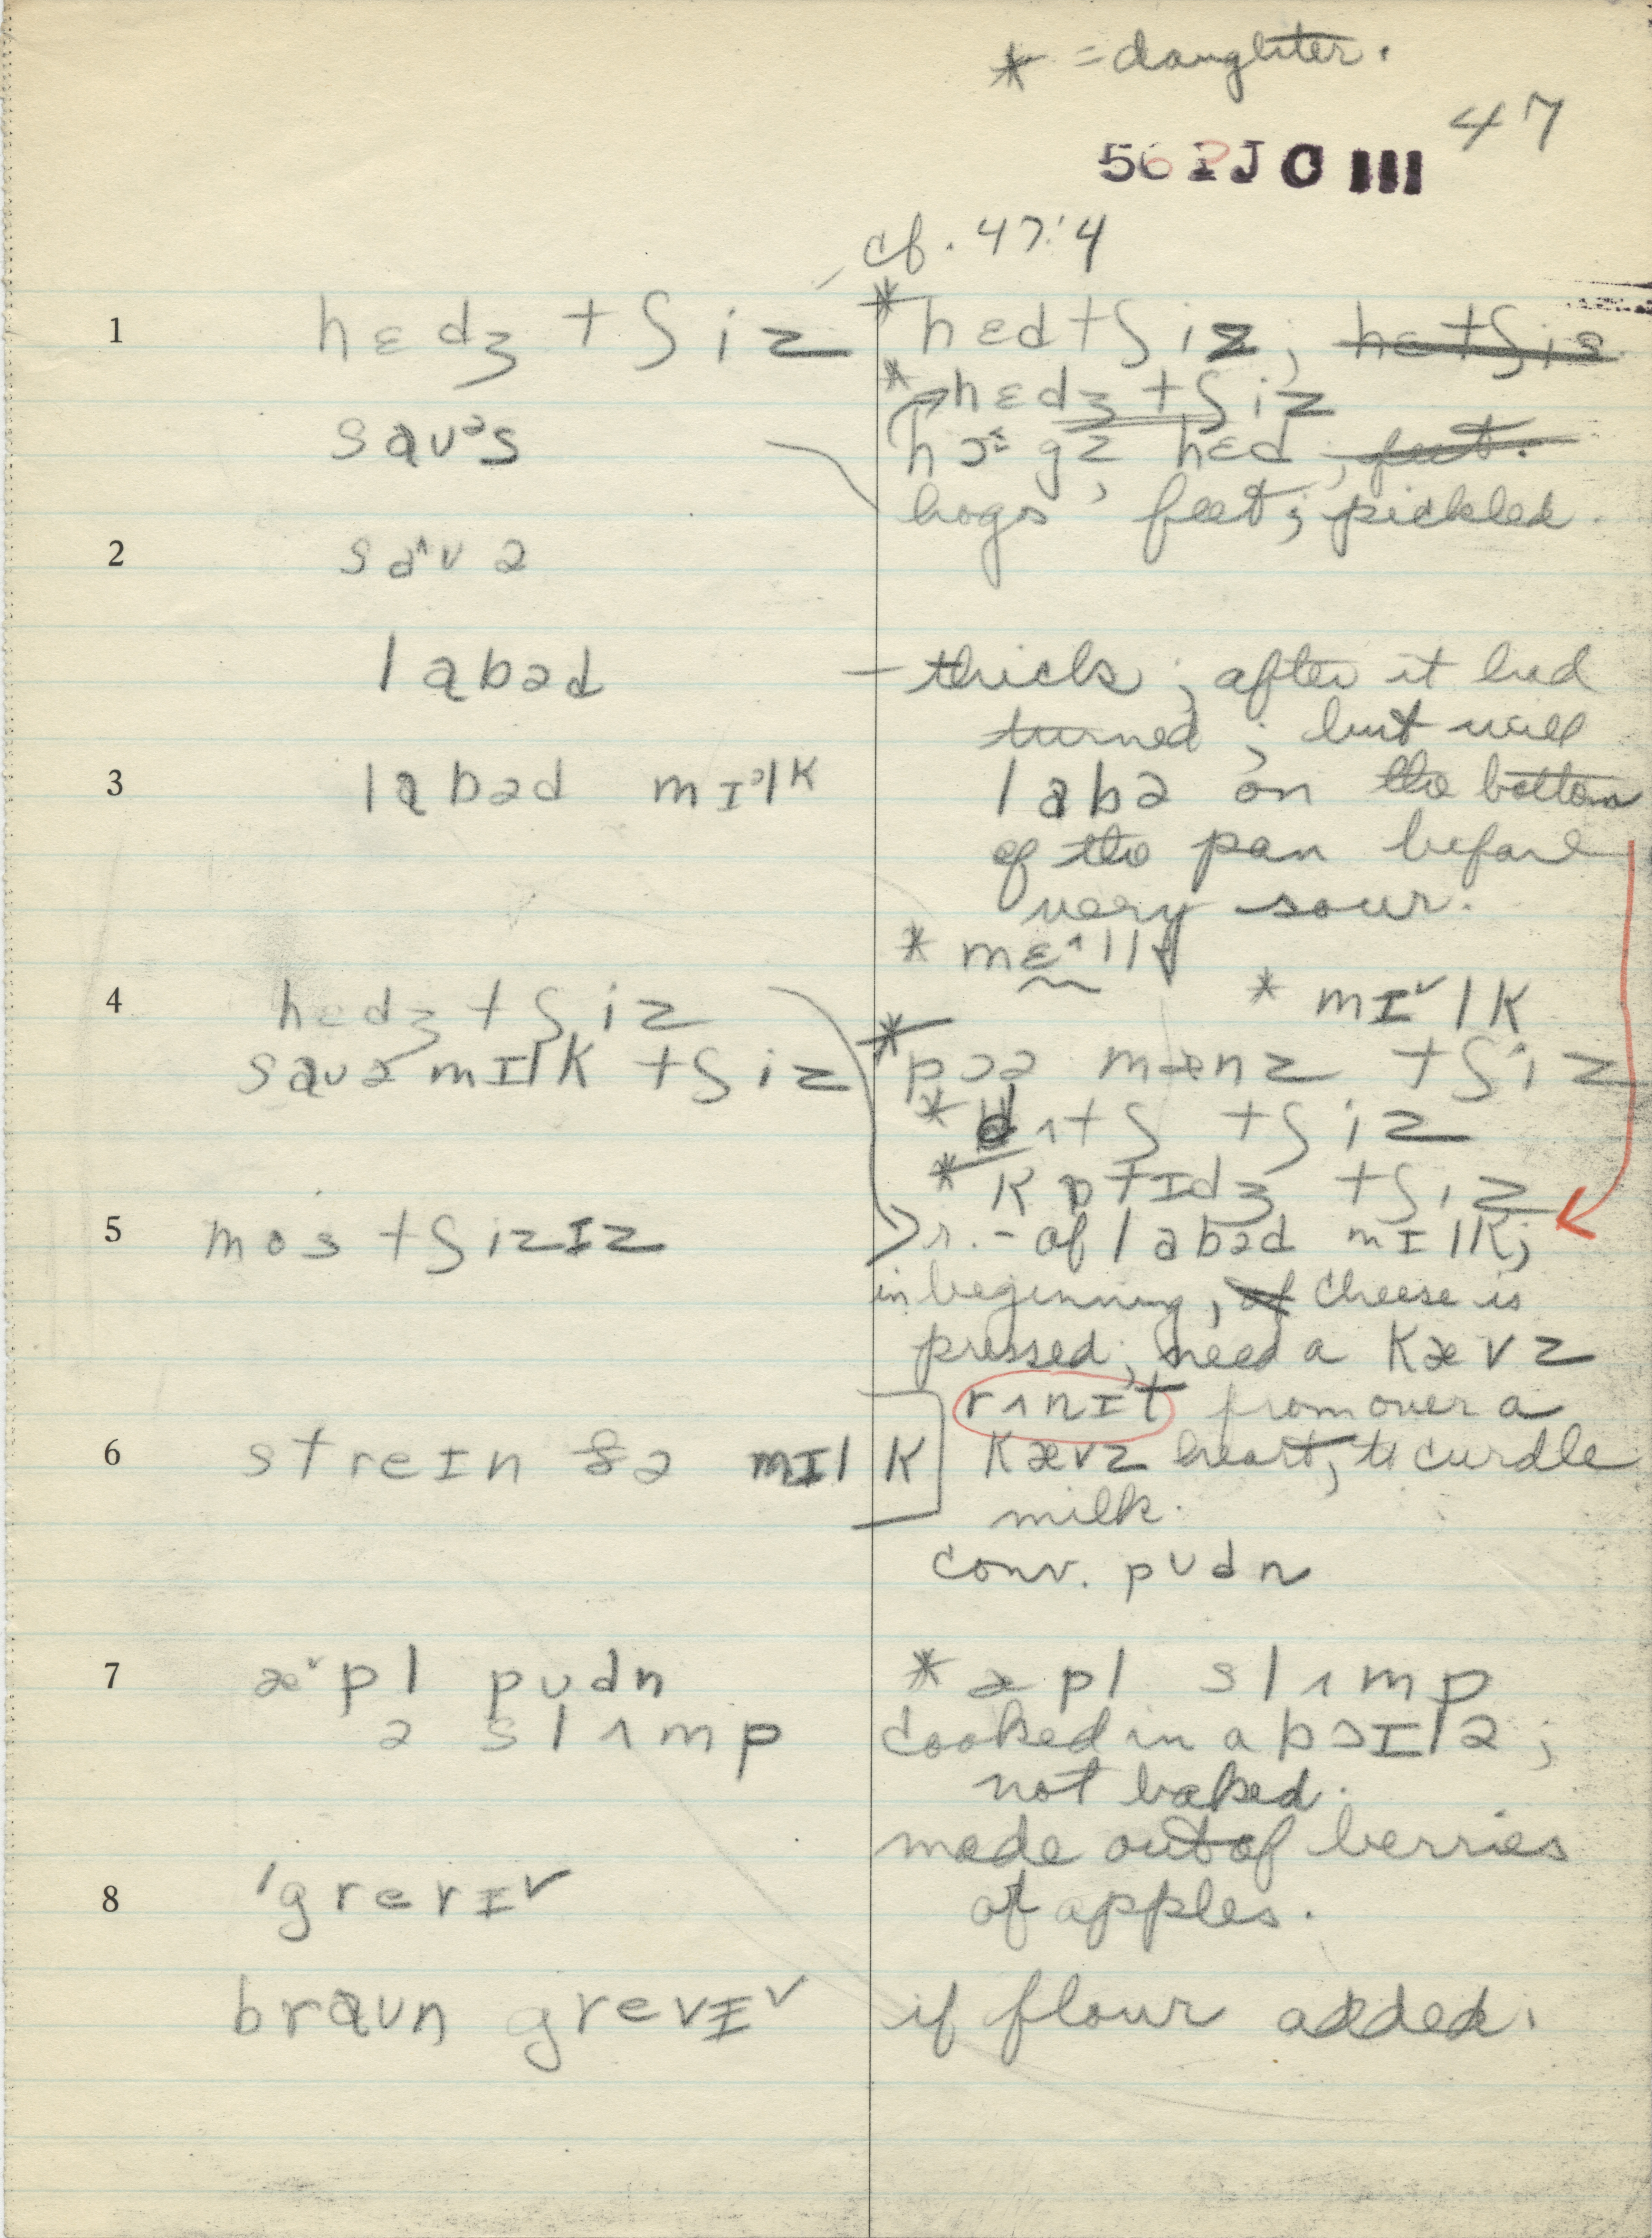 * = daughter.
47
56 PJO III
cf. 47:4
1 hɛdʒ tʃiz *hɛdtʃiz; hɛtʃiz
*hɛdʒ tʃiz
saʊᵊs hɔˤgz hɛd; feet.
hogs' feet; pickled.
2 saˆʊə
labəd – thick; after it had
turned; but will
3 labəd mɪᵊlk labə on the bottom
of the pan before
very sour.
* mɛˆlk
4 hɛdʒ tʃiz * mɪˇlk
saʊə mɪlk tʃiz *pɔə mænz tʃiz
* dʌtʃ tʃiz
* kɒtɪdʒ tʃiz
5 mo's tʃizɪz r. – of labəd mɪlk;
in beginning, of cheese is
pressed; need a kævz
rʌnɪt from over a
6 streɪn ðə mɪlk kævz heart, to curdle
milk.
conv. pʊdn
7 æˇpl pʊdn * æpl slʌmp
ə slʌmp cooked in a bɔɪlə;
not baked.
made out of berries
8 ˈgrevɪˇ of apples.
braʊn grevɪˇ if flour added.